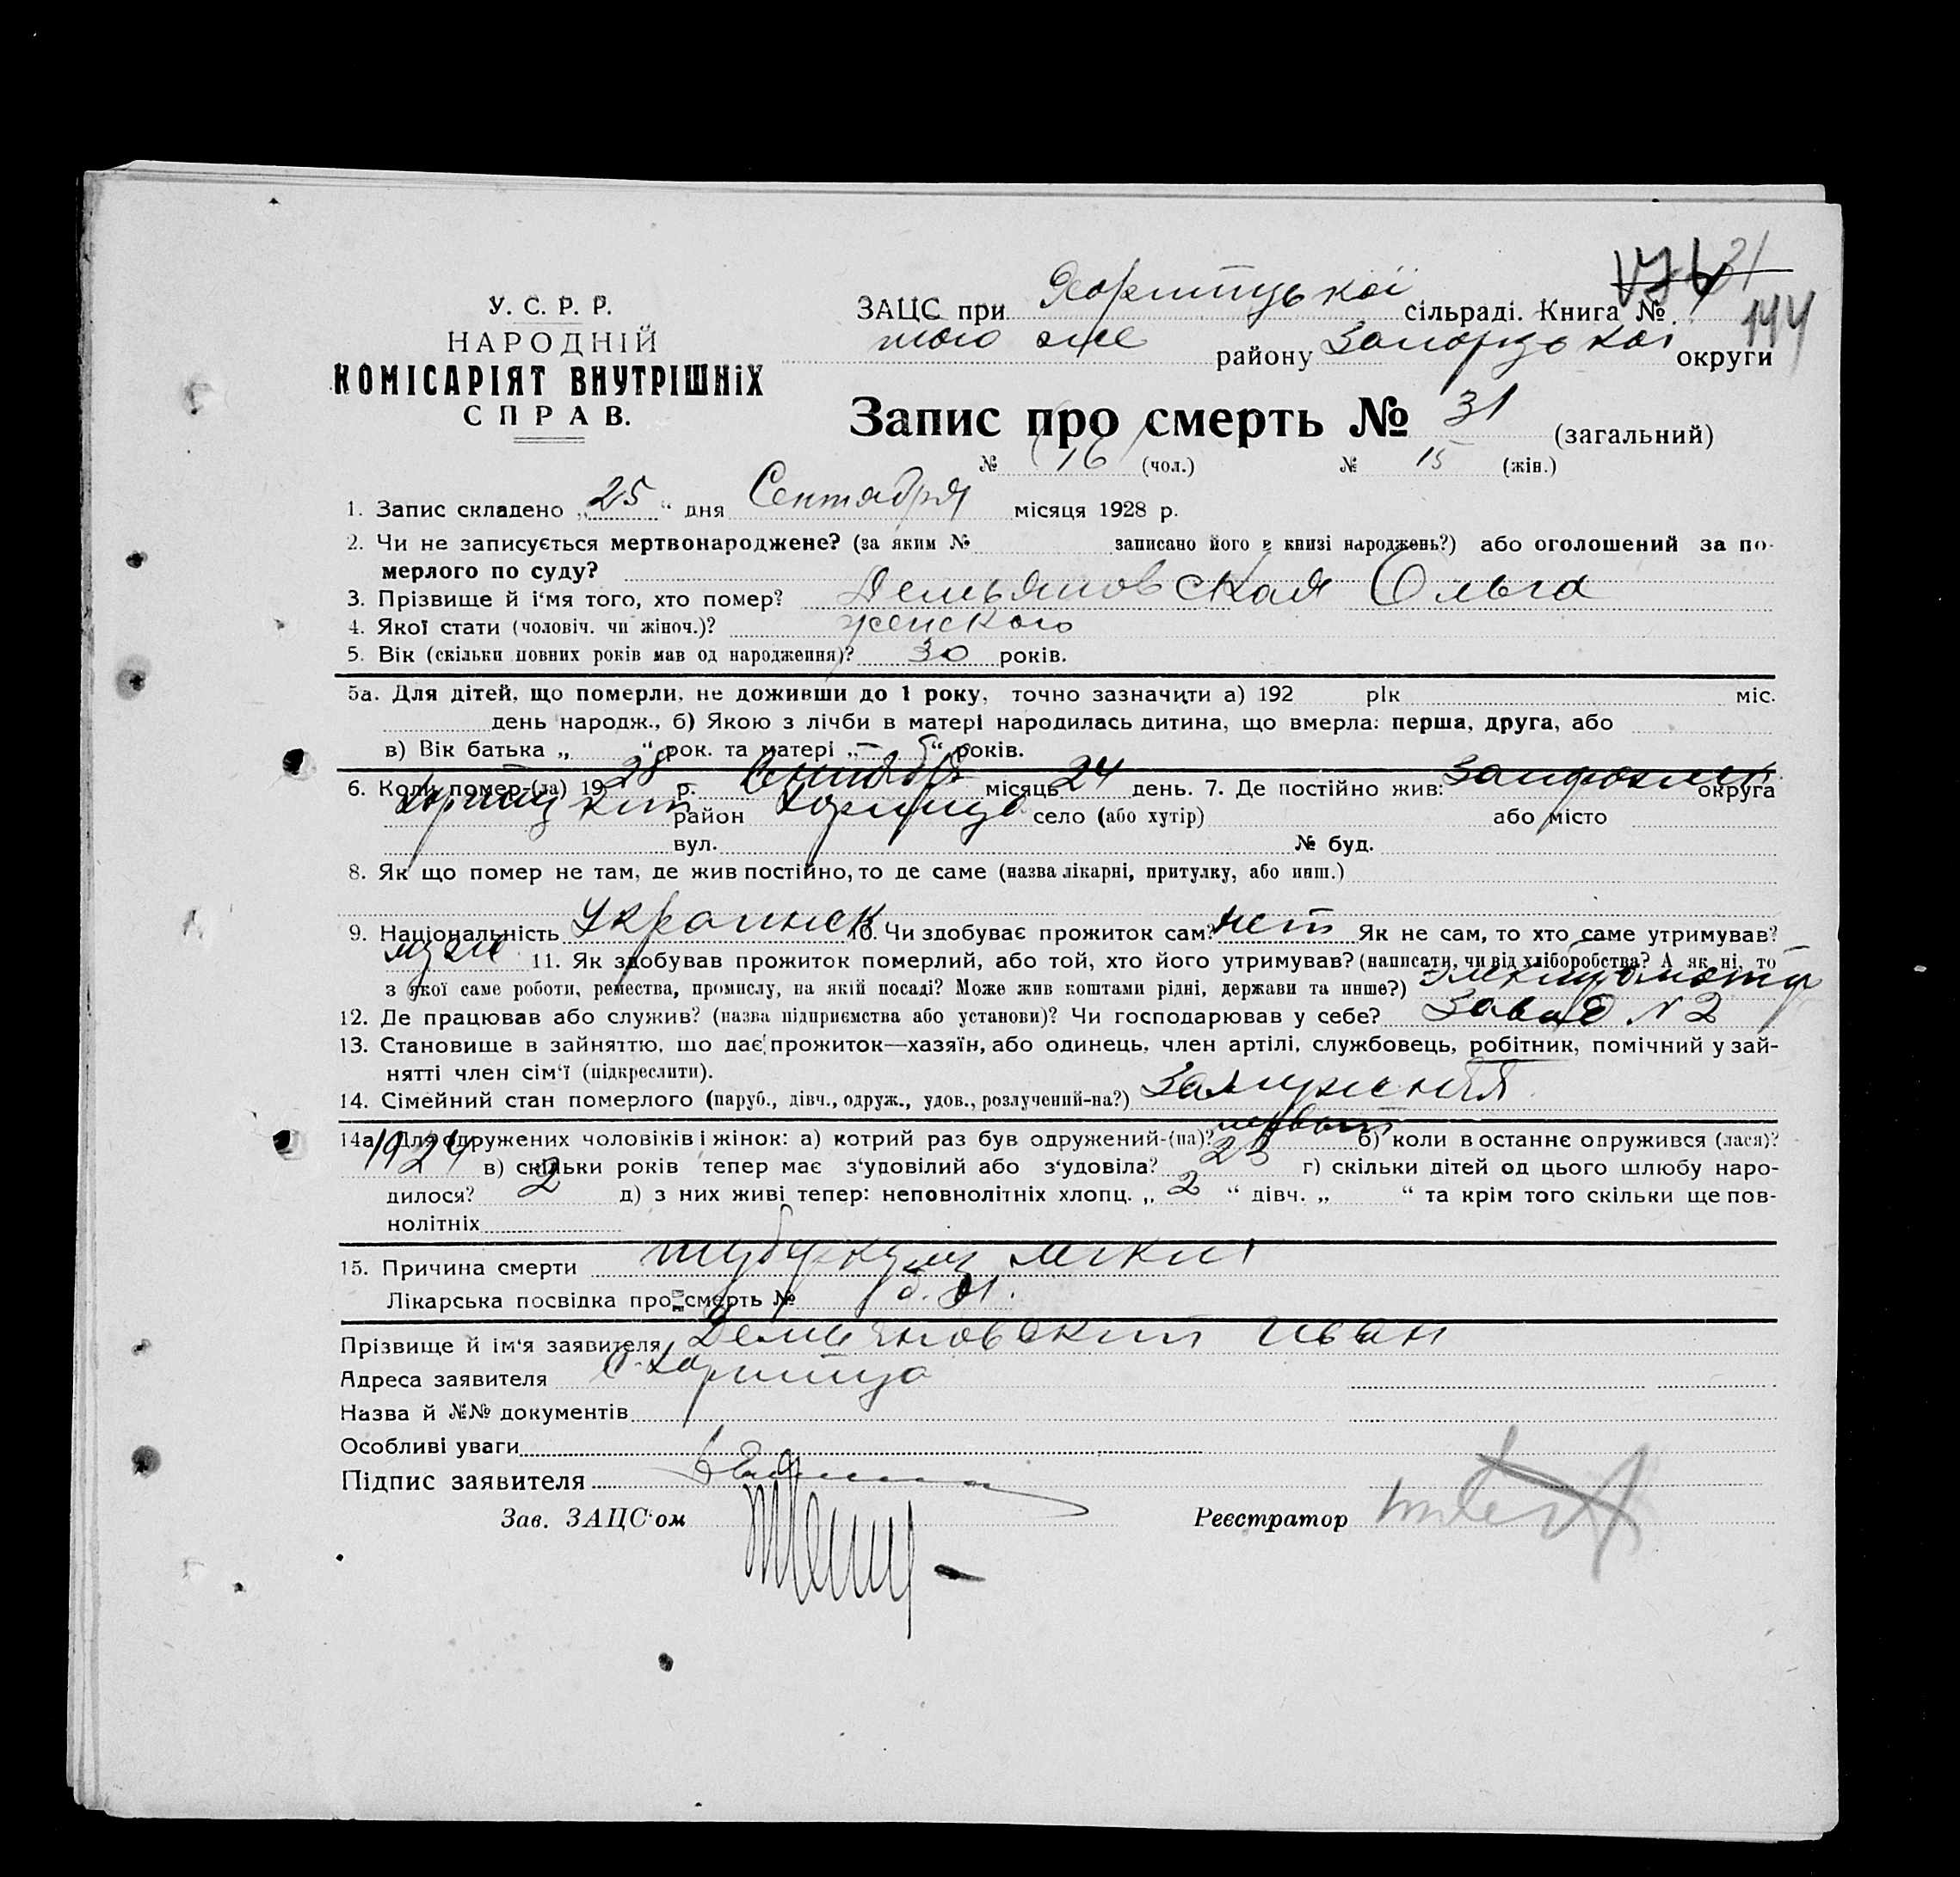 144
У. С. Р. Р.
НАРОДНІЙ
КОМІСАРІЯТ ВНУТРІШНІХ
СПРАВ.
ЗАЦС при Хортицької сільраді. Книга №
того же району Запорізької округи
Запис про смерть № 31 (загальний)
№ 16 (чол.) № 15 (жін.)
1. Запис складено „25“ дня Сентября місяця 1928 р.
2. Чи не записується мертвонароджене? (за яким № записано його в книзі народжень?) або оголошений за по-
мерлого по суду?
3. Прізвище й і'мя того, хто помер? Демьяновская Ольга
4. Якої стати (чоловіч. чи жіноч.)? женского
5. Вік (скільки повних років мав од народження)? 30 років.
5а. Для дітей, що померли, не доживши до 1 року, точно зазначити а) 192 рік міс.
день народж., б) Якою з лічби в матері народилась дитина, що вмерла: перша, друга, або
в) Вік батька „ “ рок. та матері „ “ років.
6. Коли помер-(ла) 1928 р. Сентября місяць 24 день. 7. Де постійно жив: Запорожск округа
Хортицкий район Хортица село (або хутір) або місто
вул. № буд.
8. Як що помер не там, де жив постійно, то де саме (назва лікарні, притулку, або инш.)
9. Національність Украинск 10. Чи здобуває прожиток сам? нет Як не сам, то хто саме утримував?
муж 11. Як здобував прожиток померлий, або той, хто його утримував? (написати, чи від хліборобства? А як ні, то
з якої саме роботи, ремества, промислу, на якій посаді? Може жив коштами рідні, держави та инше?)
12. Де працював або служив? (назва підприємства або установи)? Чи господарював у себе? Завод N 2
13. Становище в зайняттю, що дає прожиток—хазяїн, або одинець, член артілі, службовець, робітник, помічний у зай-
нятті член сім'ї (підкреслити).
14. Сімейний стан померлого (паруб., дівч., одруж., удов., розлучений-на?) Замужняя
14а. Для одружених чоловіків і жінок: а) котрий раз був одружений-(на)? первый б) коли в останнє одружився (лася)?
1924 в) скільки років тепер має з'удовілий або з'удовіла? г) скільки дітей од цього шлюбу наро-
дилося? 2 д) з них живі тепер: неповнолітніх хлопц. „ 2 “ дівч. „ “ та крім того скільки ще пов-
нолітніх
15. Причина смерти туберкулез легких
Лікарська посвідка про смерть №
Прізвище й ім'я заявителя Демьяновский Иван
Адреса заявителя с. Хортица
Назва й №№ документів
Особливі уваги
Підпис заявителя
Зав. ЗАЦС'ом Реєстратор